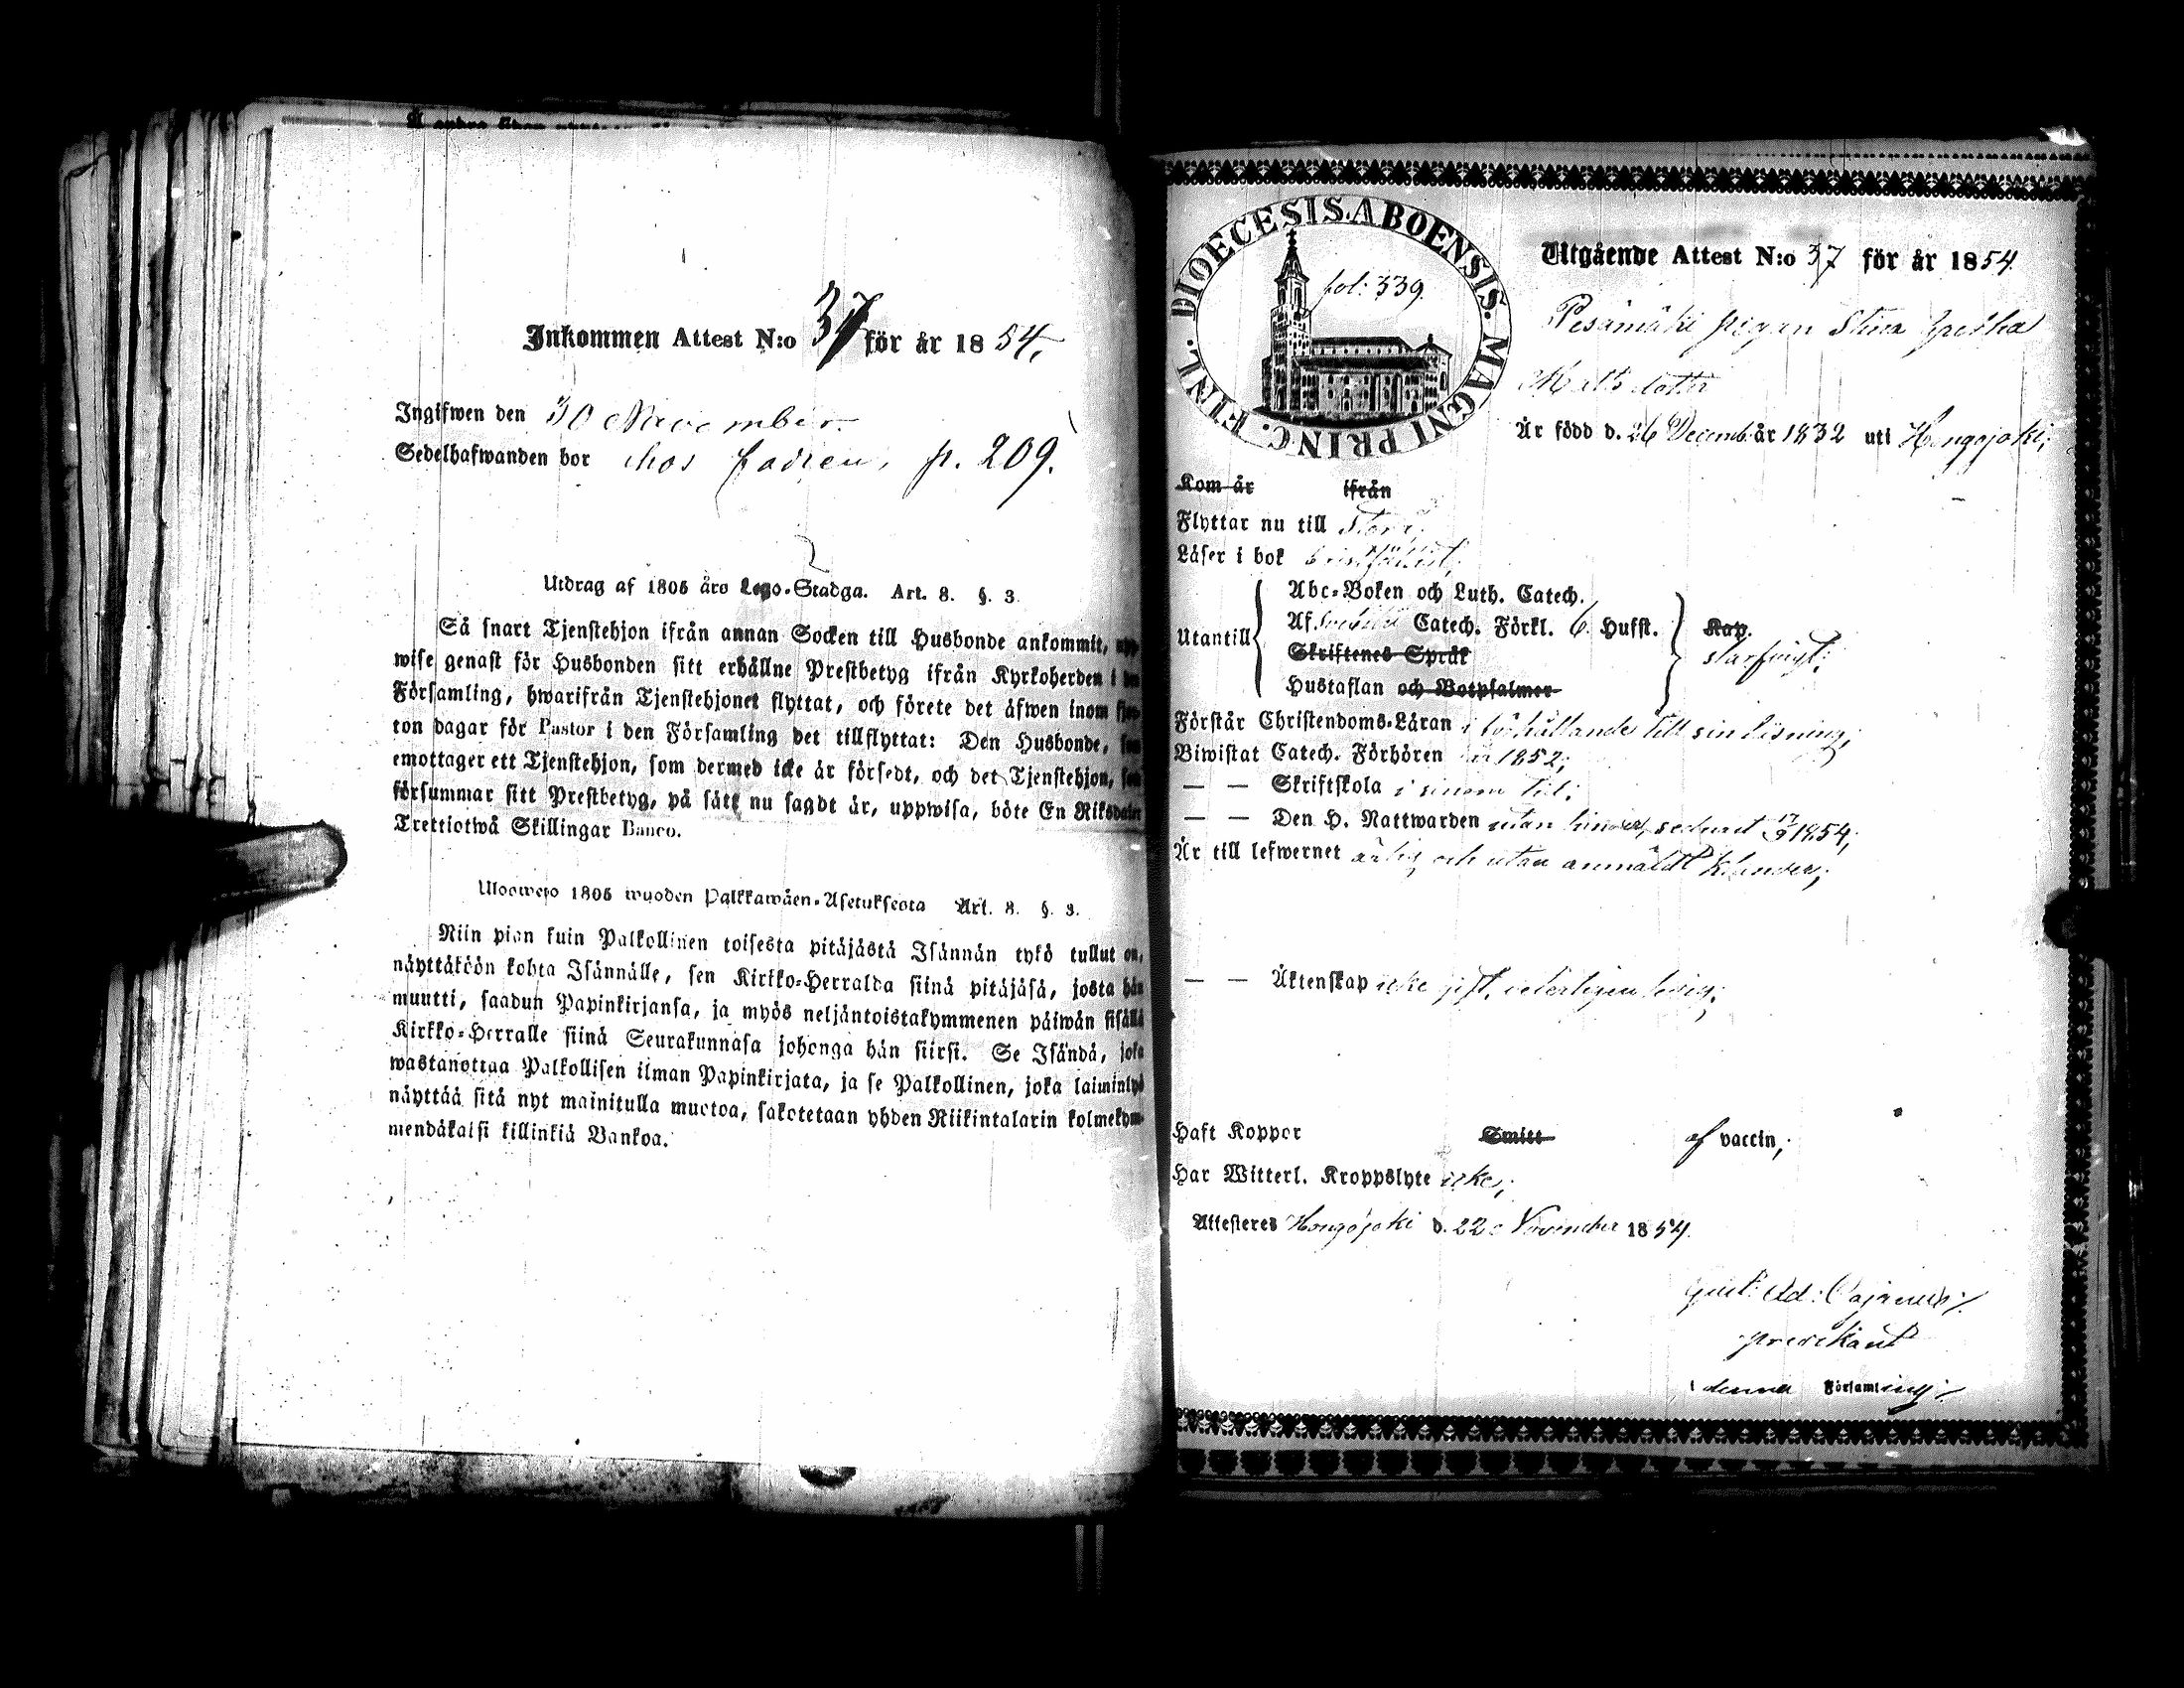 Inkommen Attest N:o 37 för år 1854.
Ingifwen den 30 November
Sedelhafwanden bor hos fadren, p. 209.
Utdrag af 1805 års Lego-Stadga. Art. 8. §. 3.
Så snart Tjenstehjon ifrån annan Socken till Husbonde ankommit,
wise genast för Husbonden sitt erhållne Prestbetyg ifrån Kyrkoherden i
Församling, hwarifrån Tjenstehjonet flyttat, och förete det äfwen inom
ton dagar för Pastor i den Församling det tillflyttat: Den Husbonde,
emottager ett Tjenstehjon, som dermed icke är försedt, och det Tjenstehjon,
försummar sitt Prestbetyg, på sätt nu sagdt är, uppwisa, böte En Riksdaler
Trettiotwå Skillingar Banco.
Uloswето 1805 wuoden Palkkawäen-Asetuksesta Art. 8. §. 3.
Niin pian kuin Palkollinen toisesta pitäjästä Isännän tykö tullut on,
näyttäköön kohta Isännälle, sen Kirkko-Herralda siinä pitäjäsä, josta hän
muutti, saadun Papinkirjansa, ja myös neljäntoistakymmenen päiwän sisällä
Kirkko-Herralle siinä Seurakunnasa johonga hän siirsi. Se Isändä, joka
wastanottaa Palkollisen ilman Papinkirjata, ja se Palkollinen, joka laiminlyö
näyttää sitä nyt mainitulla muotoa, sakotetaan yhden Riikintalarin kolmekym-
mendäkaksi killinkiä Bankoa.
DIOECESIS ABOENSIS. MAGNI PRINC. FINL.
fol: 339.
Utgående Attest N:o 37 för år 1854.
Pesämäki pigan Stina Greta
Matts dotter
Är född d. 26 Decemb. år 1832 uti Hongojoki;
Kom år ifrån
Flyttar nu till
Läser i bok
Utantill
Abc-Boken och Luth. Catech.
Af Catech. Förkl. 6. Husst. Kap.
Skriftenes Språk
Hustaflan och Botpsalmer
Förstår Christendoms-Läran i förhållande till sin läsning;
Biwistat Catech. Förhören 1852;
— — Skriftskola i sinom tid;
— — Den H. Nattwarden utan hinder, sednast 17/9 1854;
Är till lefwernet ärlig och utan anmäldt klander;
— — Äktenskap icke gift, weterligen ledig;
Haft Koppor Smitt af vaccin;
Har Witterl. Kroppslyte icke;
Attesteres Hongojoki d. 22 November 1854.
Gust: Ad: Cajanus
predikant
i denna Församling